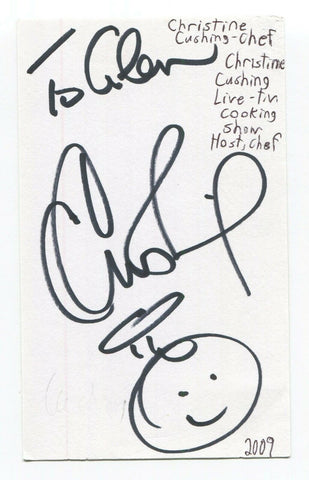 Christine
Cushing-Chef
Christine
Cushing
Live-tv
Cooking
Show
Host, Chef
To Glen
2009